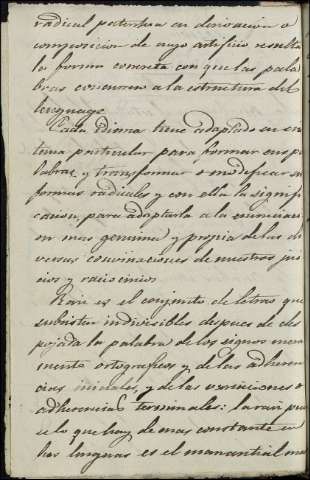 radical perturban en derivacion o
composicion de cuyo artificio resulta
la forma concreta con que las pala-
bras concurren a la estructura del
lenguage.
Cada Idioma tiene adaptado su sis
tema particular para formar sus pa
labras, y transformar o modificar sus
formas radicales y con ella la signifi
cacion, para adaptarla a la enunciaci
on mas genuina y propia de las di
versas convinaciones de nuestros jui
cios y raciocinios
Raiz es el conjunto de letras que
subsisten indivisibles despues de des
pojada la palabra de los signos mera
mente ortograficos y de las adheren
cias iniciales, y de las variaciones o
adherencias terminales: la raiz pues
es lo que hay de mas constante en
las lenguas es el manantial mas